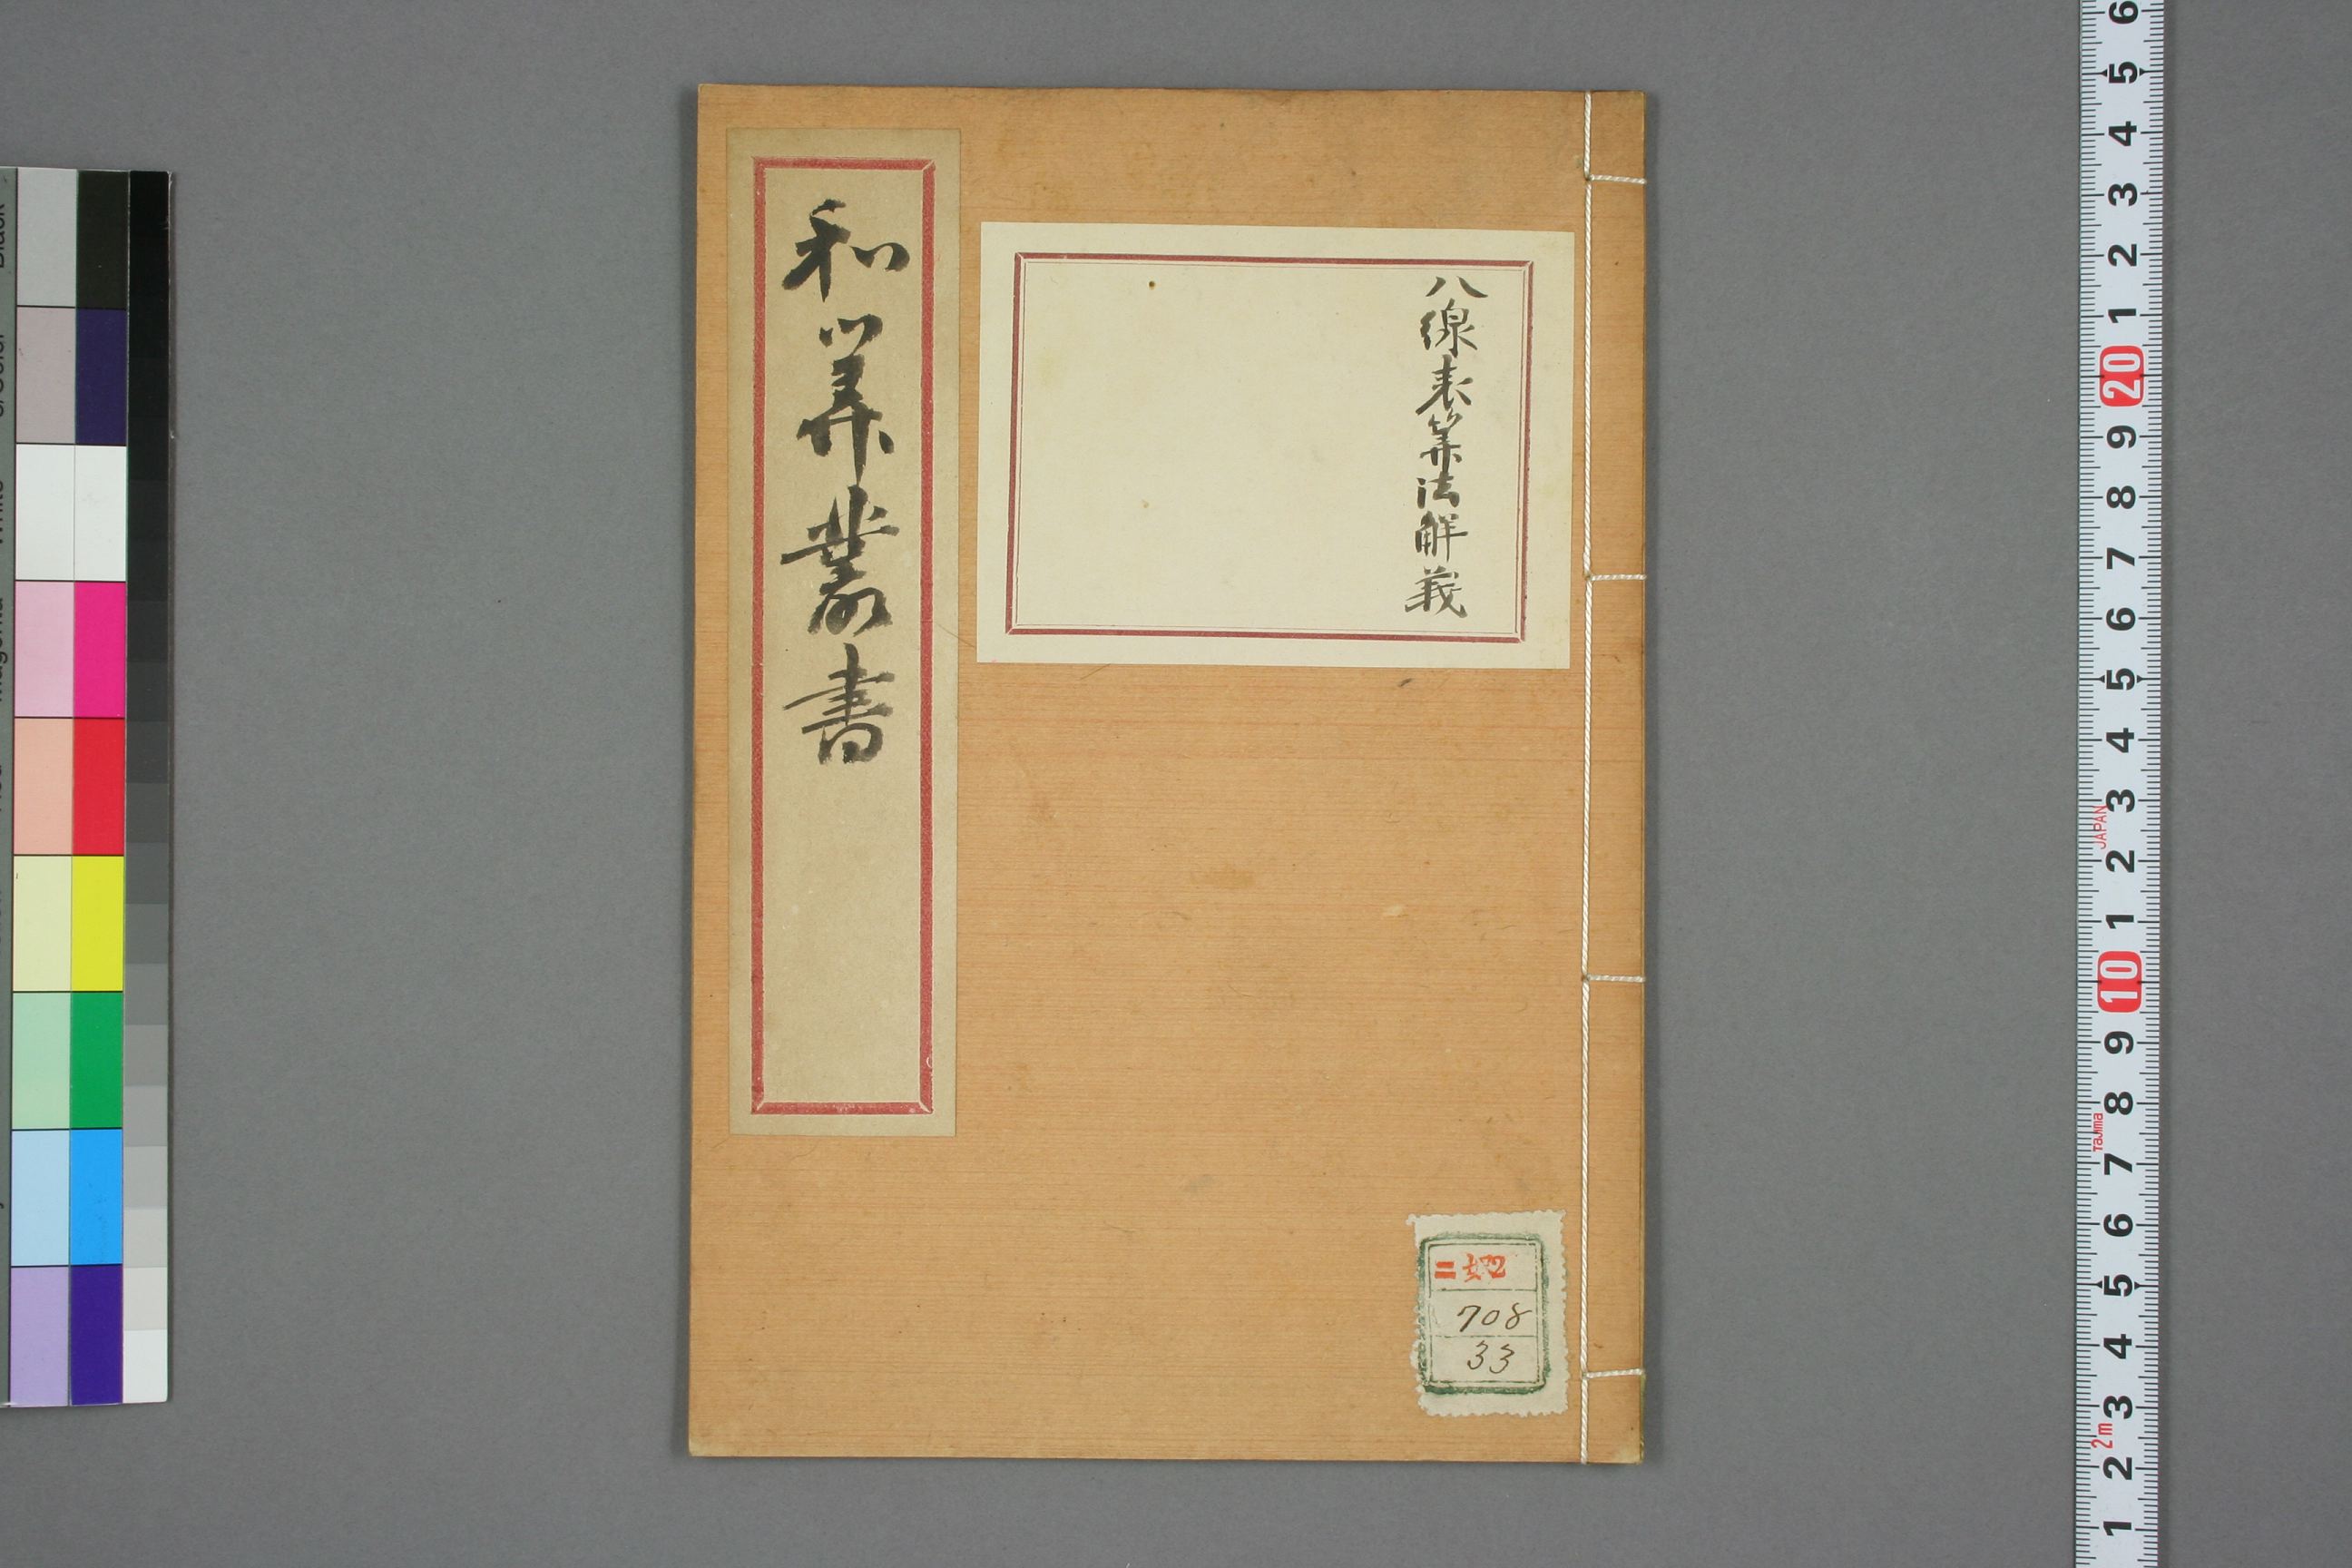 八線表算法解義
和算叢書
708
33
6
5
4
3
2
1
20
9
8
7
6
5
4
3
JAPAN
2
1
10
9
8
Tajima
7
6
5
4
3
2m
2
1